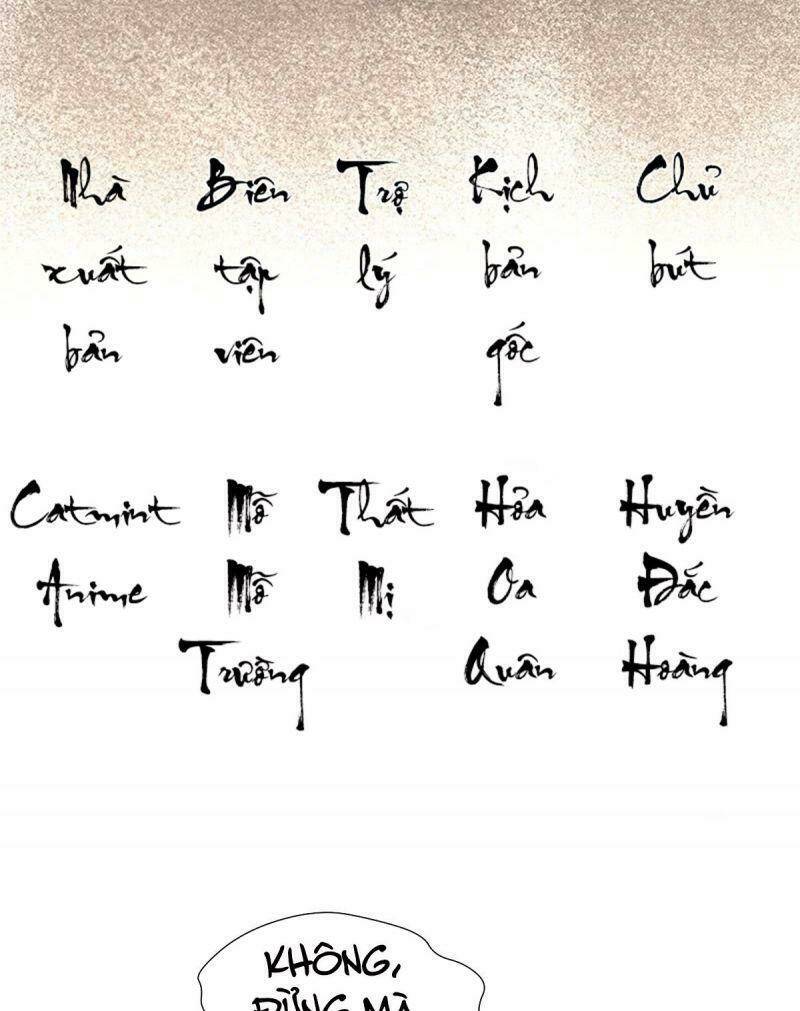 Nhà xuất bản
Catmint Anime
Biên tập viên
Mỗ Mỗ Trường
Trợ lý
Thất Mị
Kịch bản gốc
Hỏa Oa Quân
Chủ bút
Huyền Đắc Hoàng
KHÔNG,
ĐỪNG MÀ